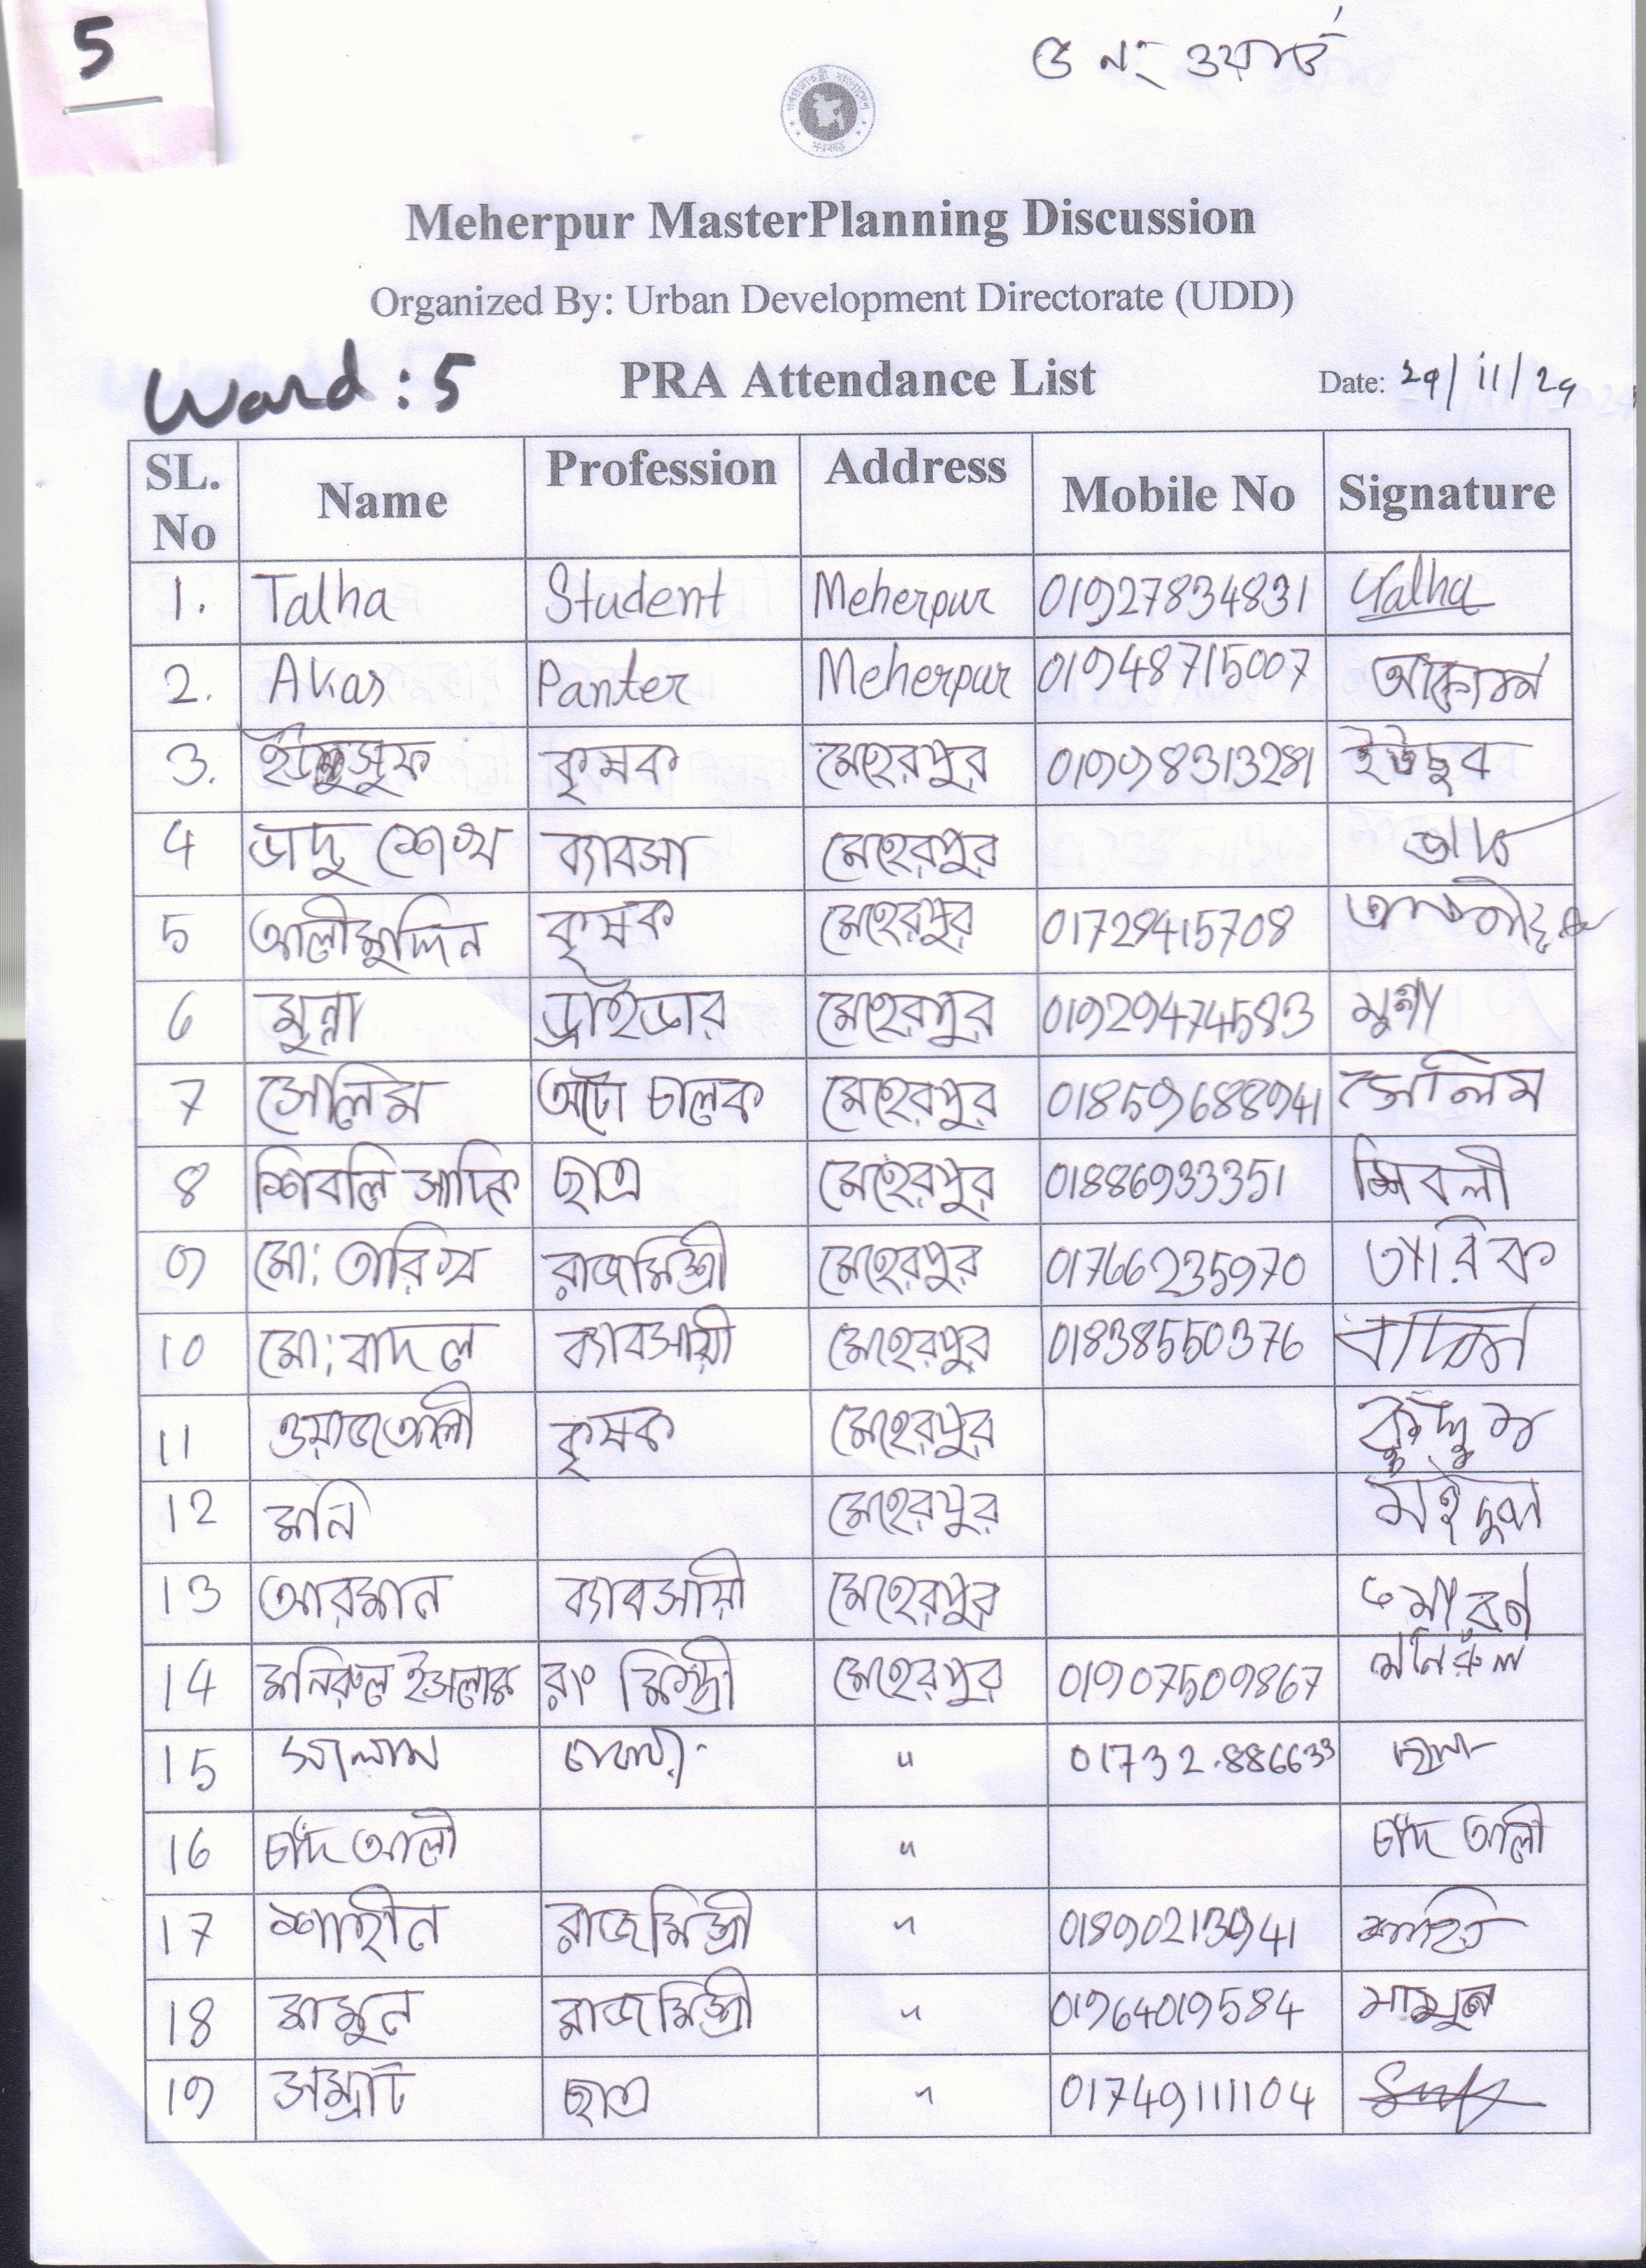 5
৫ নং ওয়ার্ড
গণপ্রজাতন্ত্রী বাংলাদেশ সরকার
Meherpur MasterPlanning Discussion
Organized By: Urban Development Directorate (UDD)
Ward : 5 PRA Attendance List Date: 29/11/24
SL. No Name Profession Address Mobile No Signature
1. Talha Student Meherpur 01927834831 Talha
2. Akas Panter Meherpur 01948715007
3. ইউসুফ কৃষক মেহেরপুর 01998313281 ইউছুব
4 ভাদু শেখ ব্যাবসা মেহেরপুর ভাদু
5 আলীমুদ্দিন কৃষক মেহেরপুর 01729415708
6 মুন্না ড্রাইভার মেহেরপুর 01929474583 মুন্না
7 সেলিম অটো চালক মেহেরপুর 01859688941 সেলিম
8 শিবলি সাদিক ছাত্র মেহেরপুর 01886933351 শিবলী
9 মো: তারিখ রাজমিস্ত্রী মেহেরপুর 01766235970 তারিক
10 মো: বাদল ব্যাবসায়ী মেহেরপুর 01838550376 বাদল
11 ওয়াজআলী কৃষক মেহেরপুর
12 মনি মেহেরপুর
13 আরমান ব্যাবসায়ী মেহেরপুর
14 মনিরুল ইসলাম রাং মিস্ত্রী মেহেরপুর 01907509867 মনিরুল
15 সালাম " 01732.886633
16 চাঁদ আলী " চাঁদ আলী
17 শাহীন রাজমিস্ত্রী " 01890213941
18 মামুন রাজমিস্ত্রী " 01964019584 মামুন
19 সম্রাট ছাত্র " 01749111104